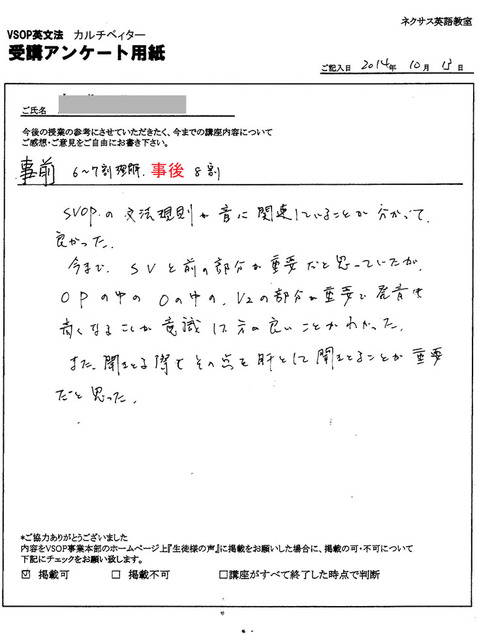 ネクサス英語教室
VSOP英文法 カルチベイター
受講アンケート用紙
ご記入日 2014年 10月 13日
ご氏名
今後の授業の参考にさせていただきたく、今までの講座内容について
ご感想・ご意見をご自由にお書き下さい。
事前 6~7割理解. 事後 8割
SVOP.の文法規則が音に関連していることが分かって.
良かった.
今まで. SVと前の部分が重要だと思っていたが.
OPの中のOの中の. V2の部分が重要で発音も
高くなることが意識 方の良いことがわかった.
また、聞きとる際もその点を肝として聞きとることが重要
だと思った.
*ご協力ありがとうございました
内容をVSOP事業本部のホームページ上『生徒様の声』に掲載をお願いした場合に、掲載の可・不可について
下記にチェックをお願い致します。
☑ 掲載可 □ 掲載不可 □講座がすべて終了した時点で判断